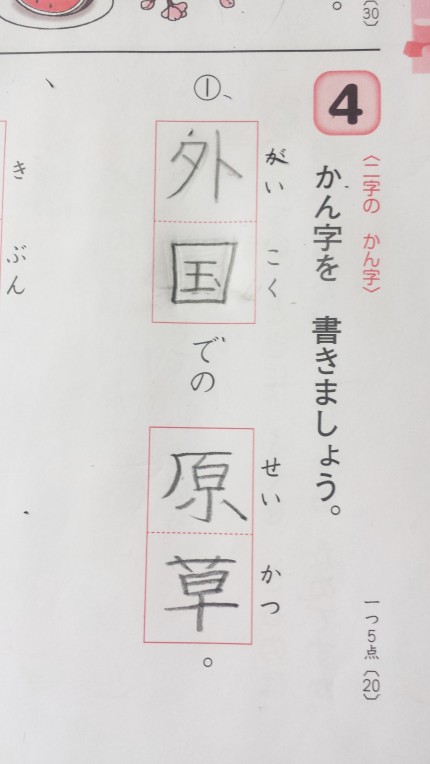 (30)
。
4
〈二字の かん字〉
かん字を 書きましょう。
一つ5点(20)
①、
がい こく
外国での
せい かつ
原草。
き ぶん